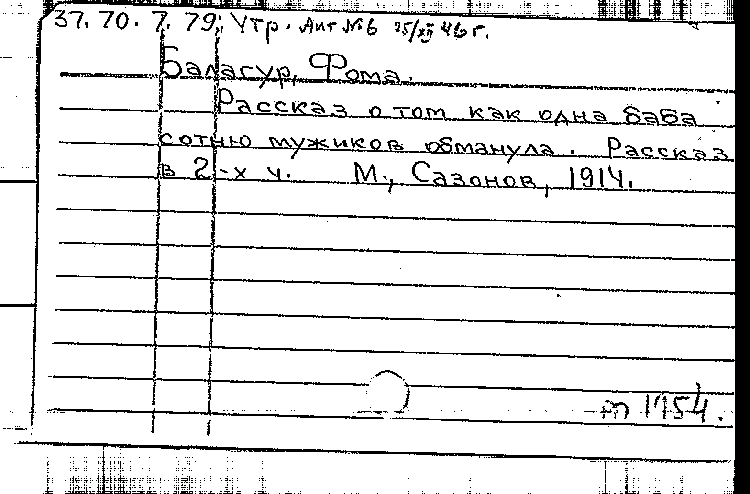 37.70.7.79; Утр. Акт №6 25/XII 46 г.
Балагур, Фома.
Рассказ о том как одна баба
сотню мужиков обманула. Рассказ
в 2-х ч. М., Сазонов, 1914.
1954.